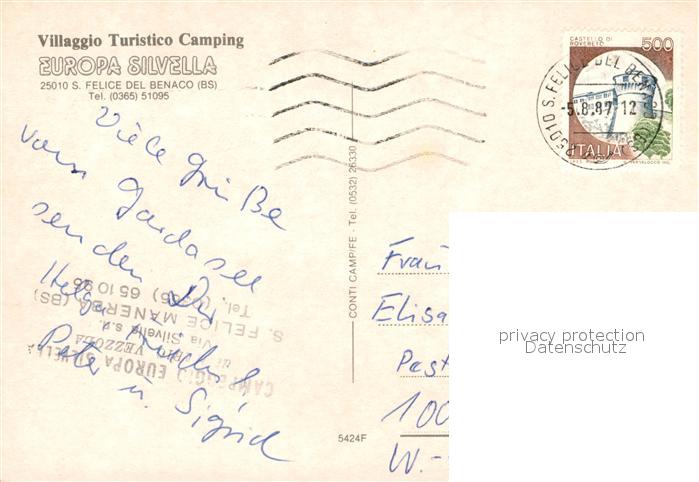 Villaggio Turistico Camping
EUROPA SILVELLA
25010 S. FELICE DEL BENACO (BS)
Tel. (0365) 51095
Viele Grüße
vom Gardasee
senden Dir
Helga
Peter u. Sigrid
CAMPEGGIO EUROPA SILVELLA
VEZZOLA
Via Silvella
S. FELICE MANERBA (BS)
65 10 95
CONTI CAMP/FE - Tel. (0532) 26330
5424F
CASTELLO DI
ROVERETO
500
ITALIA
25010 S. FELICE DEL
-5.8.87 12
Frau
Elisa
Past
100
W.-
privacy protection
Datenschutz